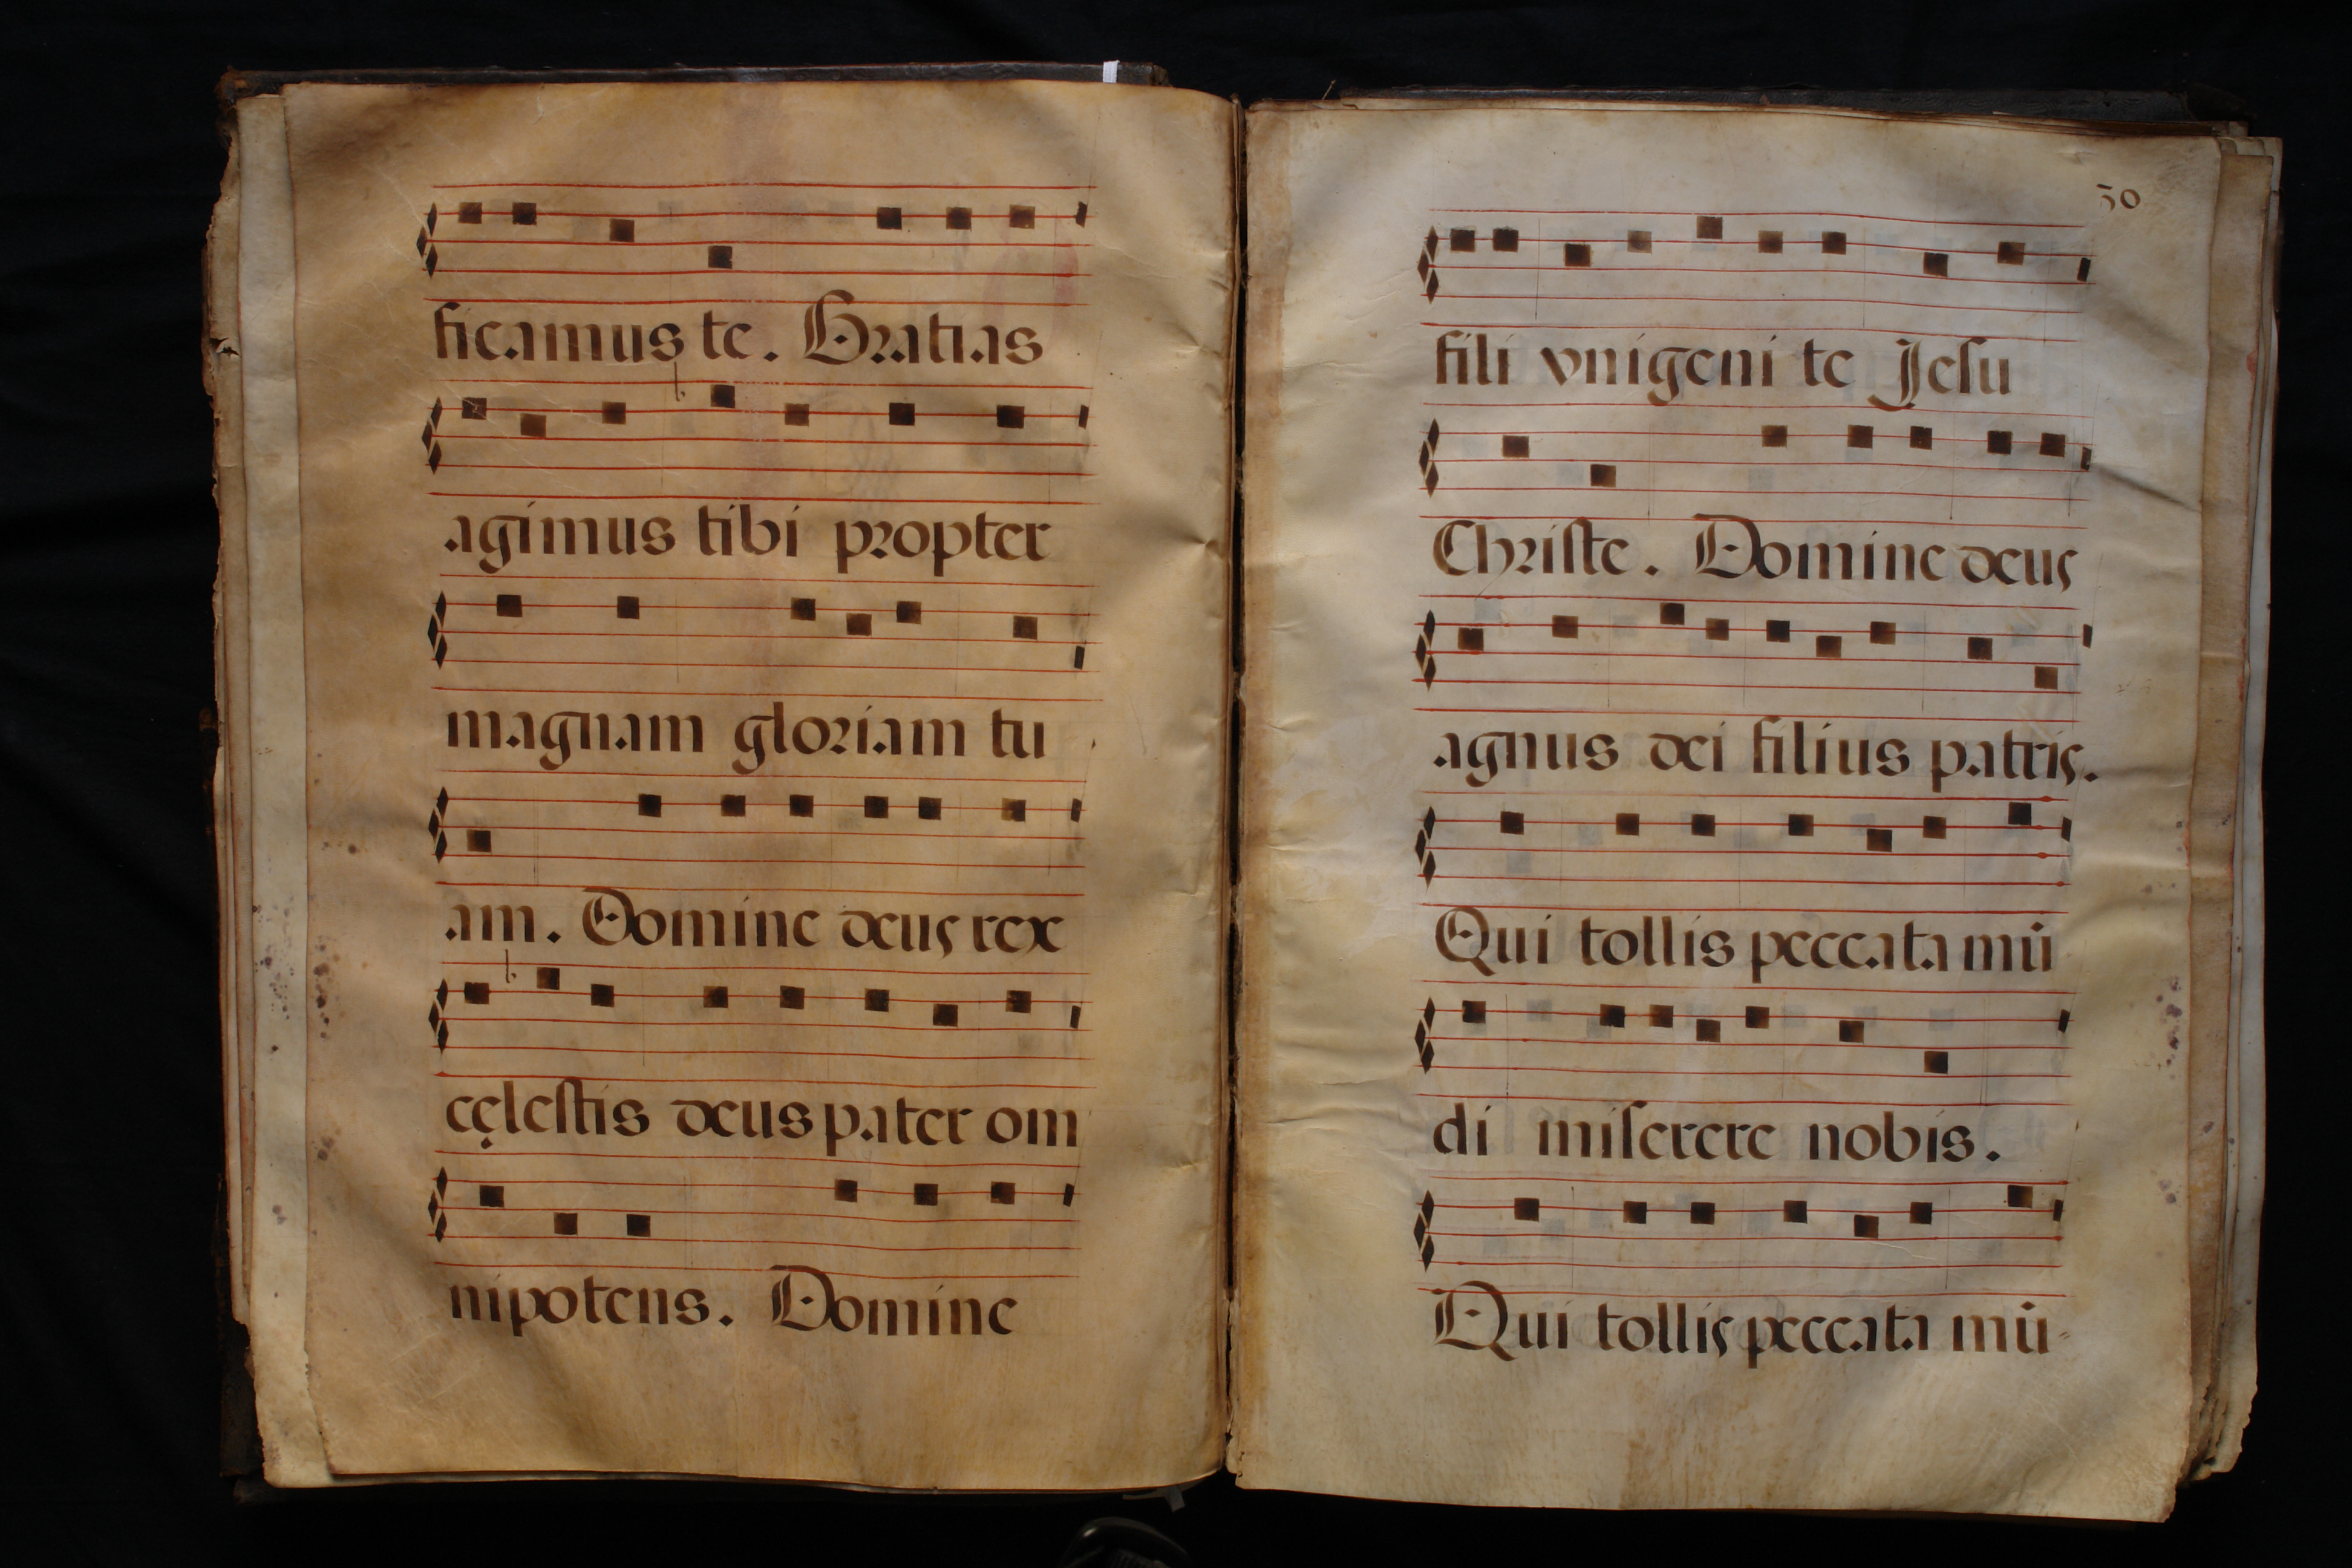 ficamus te. Gratias
agimus tibi propter
magnam gloriam tu
am. Domine deus rex
cęlestis deus pater om
nipotens. Domine
50
fili vnigeni te Jesu
Christe. Domine deus
agnus dei filius patris.
Qui tollis peccata mū
di miserere nobis.
Qui tollis peccata mū-